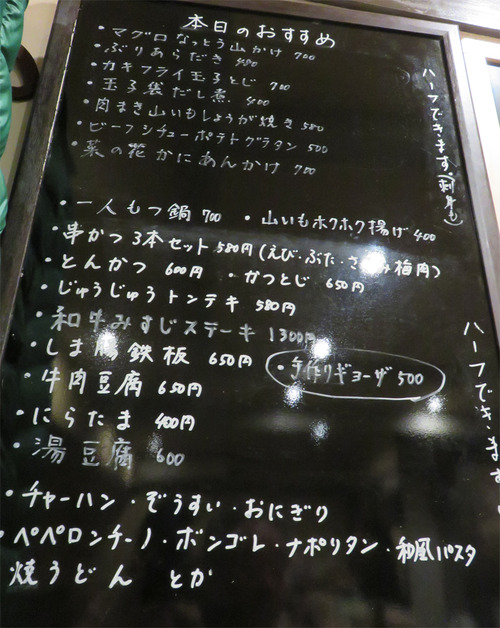 本日のおすすめ
・マグロなっとう山かけ 700
・ぶりあらだき 480
・カキフライ玉子とじ 700
・玉子袋だし煮 400
・肉まき山いもしょうが焼き 580
・ビーフシチューポテトグラタン 500
・菜の花かにあんかけ 700
ハーフできます。(刺身も)
・一人もつ鍋 700 ・山いもホクホク揚げ 400
・串かつ3本セット 580円(えび・ぶた・ささみ梅肉)
・とんかつ 600円 ・かつとじ 650円
・じゅうじゅうトンテキ 580円
・和牛みすじステーキ 1300円
・しま腸鉄板 650円
・手作りギョーザ 500
・牛肉豆腐 650円
・にらたま 400円
・湯豆腐 600
ハーフできます
・チャーハン・ぞうすい・おにぎり
・ペペロンチーノ・ボンゴレ・ナポリタン・和風パスタ
焼うどん とか